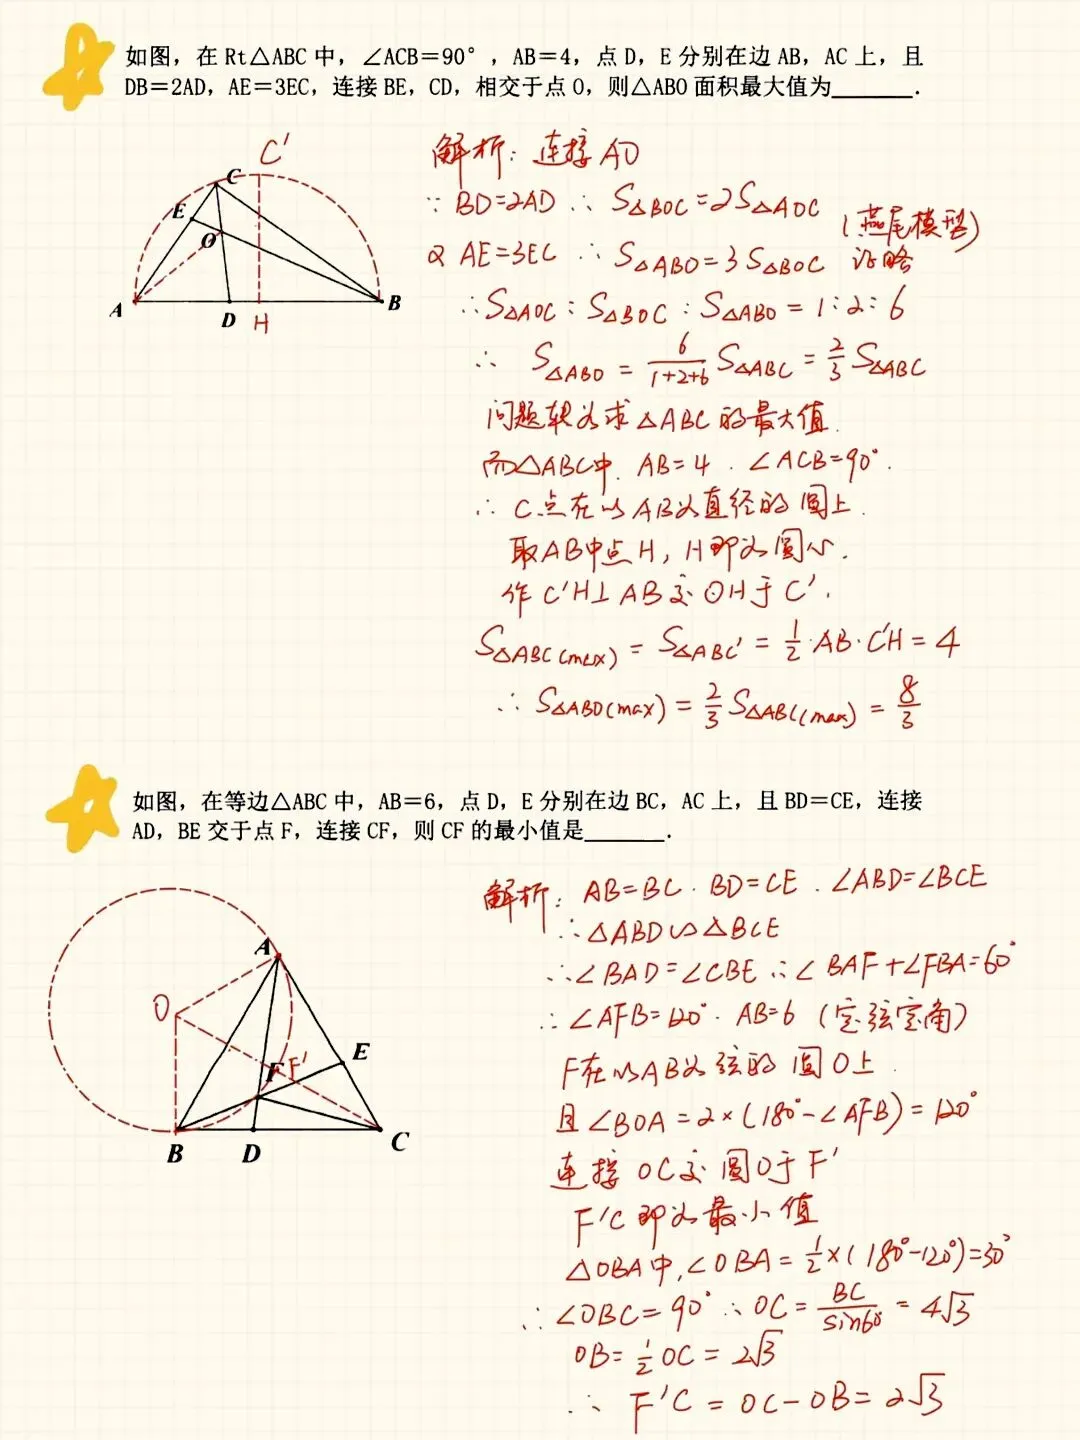 如图，在 Rt△ABC 中，∠ACB＝90°，AB＝4，点 D，E 分别在边 AB，AC 上，且
DB＝2AD，AE＝3EC，连接 BE，CD，相交于点 O，则△ABO 面积最大值为______．
C'
C
E
O
A
D
H
B
解析：连接 AO
∵ BD=2AD ∴ S△BOC=2S△AOC
又 AE=3EC ∴ S△ABO=3S△BOC
(燕尾模型)
证略
∴S△AOC : S△BOC : S△ABO = 1:2:6
∴ S△ABO = 6/(1+2+6) S△ABC = 2/3 S△ABC
问题转为求△ABC的最大值.
而△ABC中. AB=4 . ∠ACB=90°.
∴ C点在以AB为直径的圆上.
取AB中点H, H即为圆心.
作 C'H⊥AB交⊙H于C'.
S△ABC(max) = S△ABC' = 1/2·AB·C'H = 4
∴ S△ABO(max) = 2/3 S△ABC(max) = 8/3
如图，在等边△ABC 中，AB＝6，点 D，E 分别在边 BC，AC 上，且 BD＝CE，连接
AD，BE 交于点 F，连接 CF，则 CF 的最小值是______．
A
O
F
F'
E
B
D
C
解析: AB=BC . BD=CE . ∠ABD=∠BCE
∴△ABD∽△BCE
∴∠BAD=∠CBE ∴∠BAF+∠FBA=60°
∴∠AFB=120° . AB=6 (定弦定角)
F在以AB为弦的圆O上.
且∠BOA=2×(180°-∠AFB)=120°
连接OC交圆O于F'
F'C即为最小值
△OBA中,∠OBA=1/2×(180°-120°)=30°
∴∠OBC=90° ∴OC=BC/sin60°=4√3
OB=1/2OC=2√3
∴ F'C=OC-OB=2√3